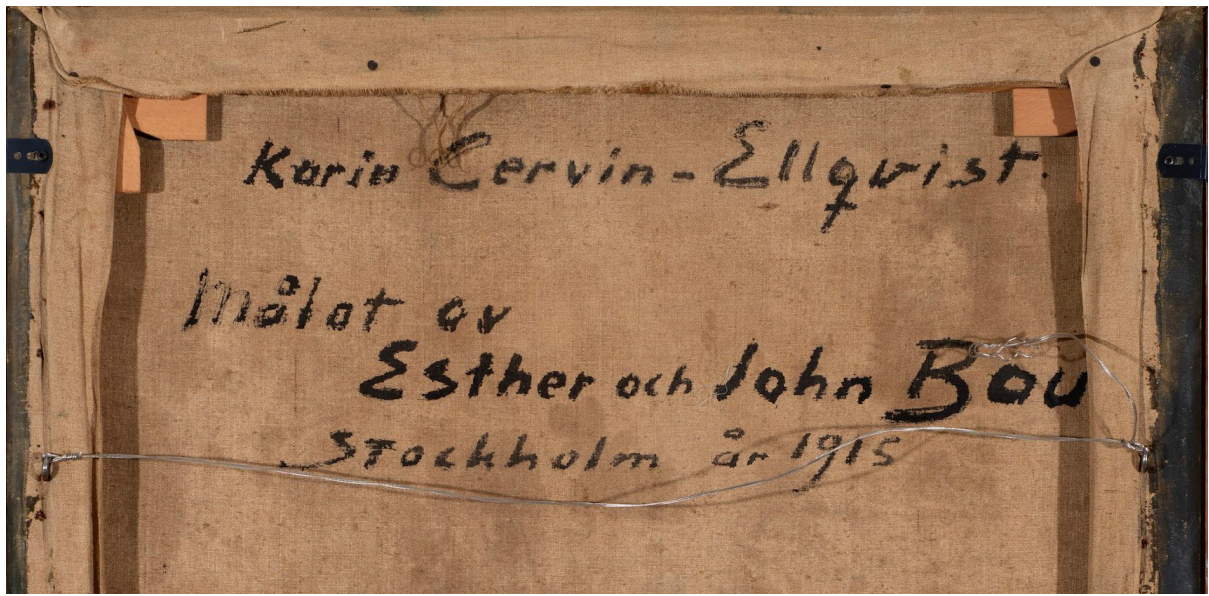 Karin Cervin-Ellqvist.
Målat av
Esther och John Bau
Stockholm år 1915